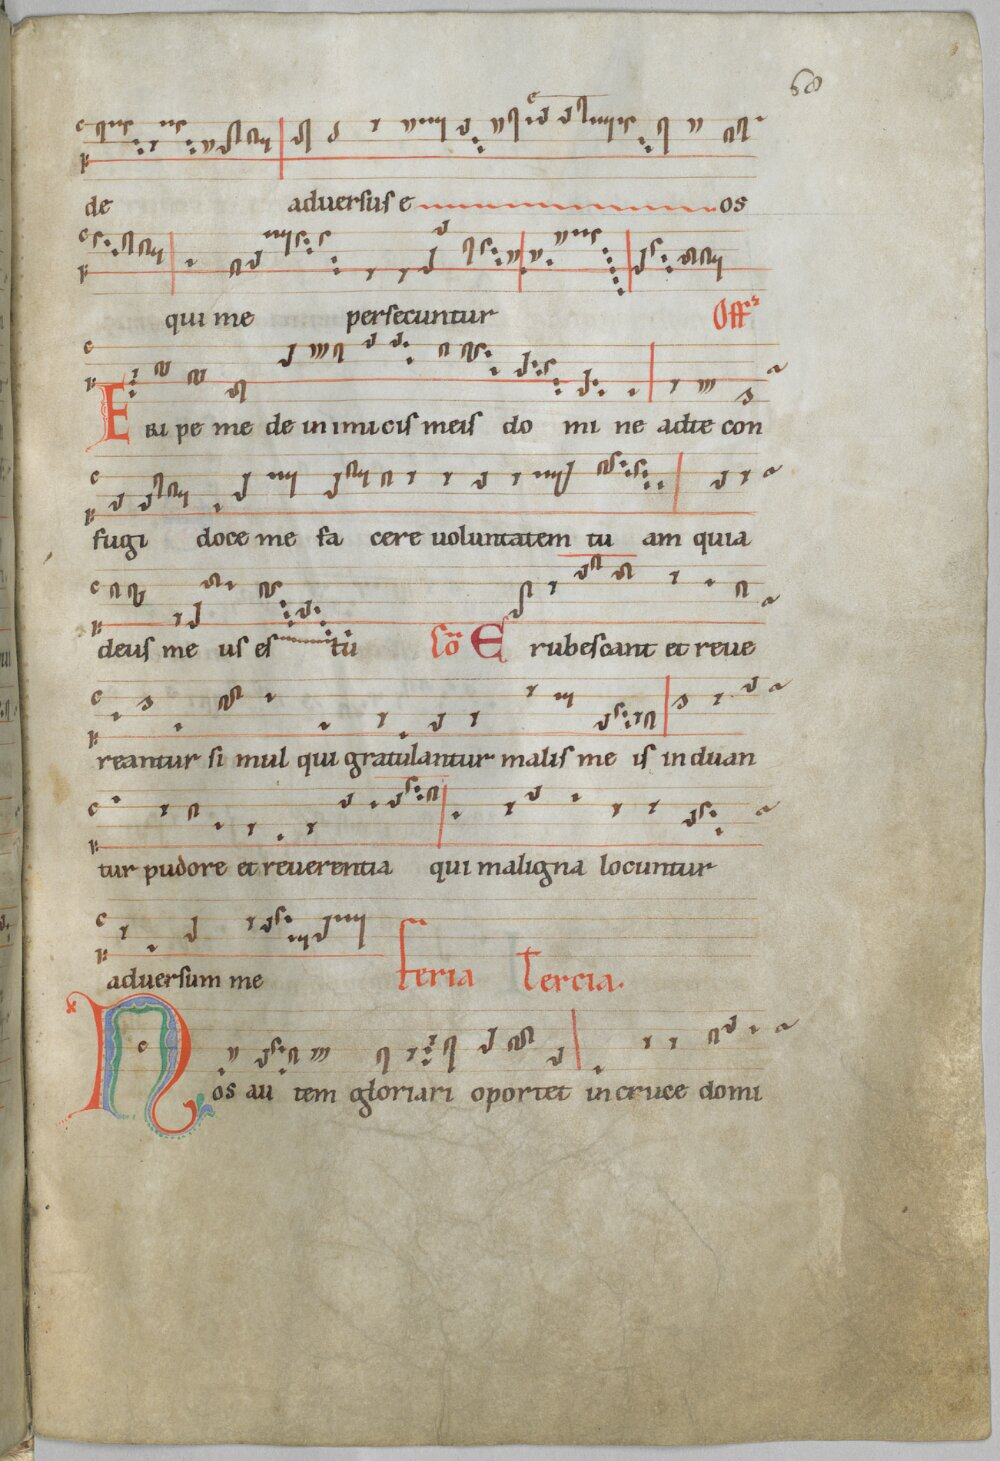 68
de adversus e os
qui me persecuntur Off
Eri pe me de in imicis meis do mi ne ad te con
fugi doce me fa cere uoluntatem tu am quia
deus me us es tu Cō Erubescant et reue
reantur si mul qui gratulantur malis me is induan
tur pudore et reuerentia qui maligna locuntur
aduersum me feria Tercia.
Nos au tem gloriari oportet in cruce domi